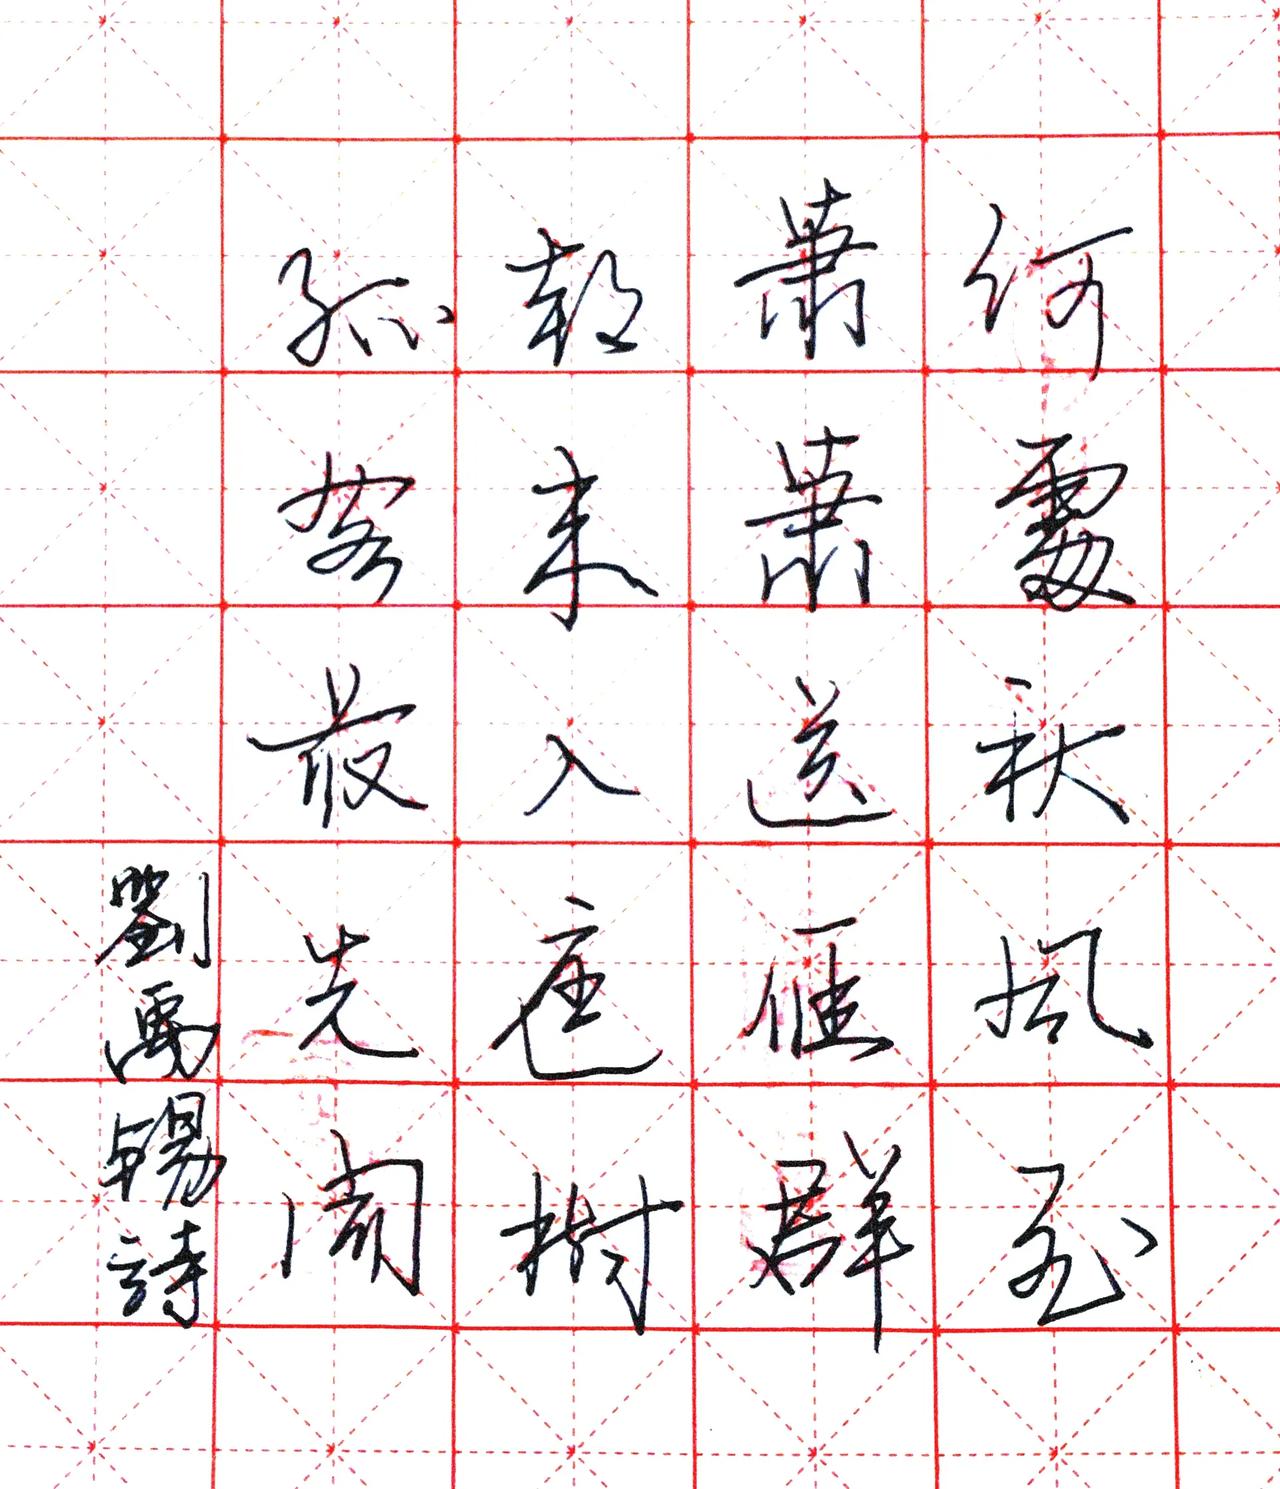 何處秋風至
蕭蕭送雁群
朝来入庭樹
孤客最先聞
劉禹錫詩